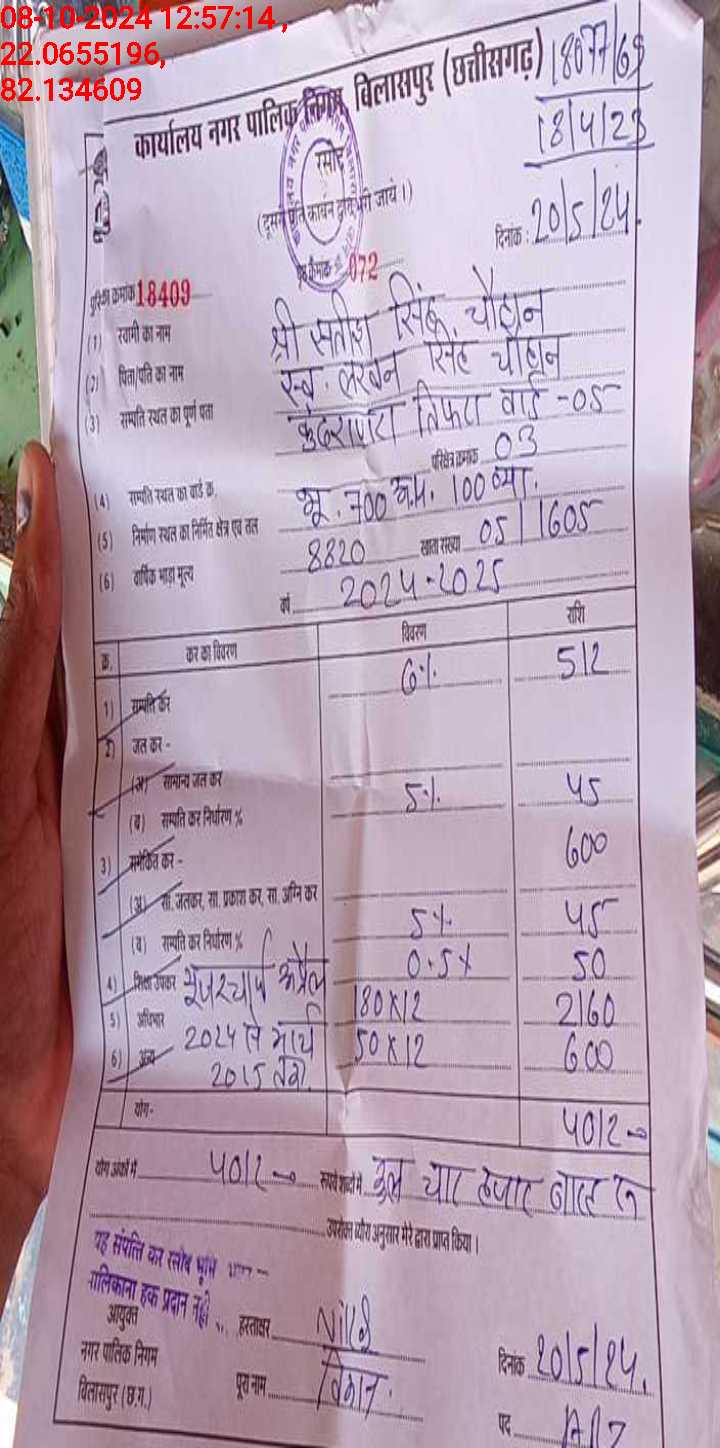 08-10-2024 12:57:14 ,
22.0655196,
82.134609
18077/69
18/4/23
कार्यालय नगर पालिक निगम, बिलासपुर (छत्तीसगढ़)
रसीद
(दूसरी प्रति कार्बन द्वारा भरी जाये।)
दिनांक : 20/5/24
072
पुस्तिका क्रमांक 18409
(1) स्वामी का नाम श्री सतीश सिंह चौहान
(2) पिता/पति का नाम स्व. लखन सिंह चौहान
(3) सम्पति स्थल का पूर्ण पता तिफरा वार्ड -05
(4) सम्पति स्थल का वार्ड क्र. परिक्षेत्र क्रमांक 03
(5) निर्माण स्थल का निर्मित क्षेत्र एवं तल भू. 700 आ. 100 व्या.
(6) वार्षिक भाड़ा मूल्य 8820 खाता संख्या 05/1605
वर्ष 2024-2025
क्र. कर का विवरण विवरण राशि
1) सम्पति कर 6% 512
2) जल कर -
(अ) सामान्य जल कर
(ब) सम्पति कर निर्धारण % 5% 45
3) समेकित कर - 600
(अ) सा. जलकर, सा. प्रकाश कर, सा. अग्नि कर
(ब) सम्पति कर निर्धारण % 5% 45
4) शिक्षा उपकर 0.5% 50
यूजरचार्ज अप्रैल
5) अधिभार 180x12 2160
2024 से मार्च
6) अन्य 50x12 600
2015 तक
योग- 4012
योग अंकों में 4012 रूपये शब्दों में कुल चार हजार बारह रू
उपरोक्त ब्योरा अनुसार मेरे द्वारा प्राप्त किया।
यह संपत्ति कर रसीद भूमि
मालिकाना हक प्रदान नहीं
आयुक्त हस्ताक्षर
नगर पालिक निगम दिनांक 20/5/24.
बिलासपुर (छ.ग.) पूरा नाम
पद